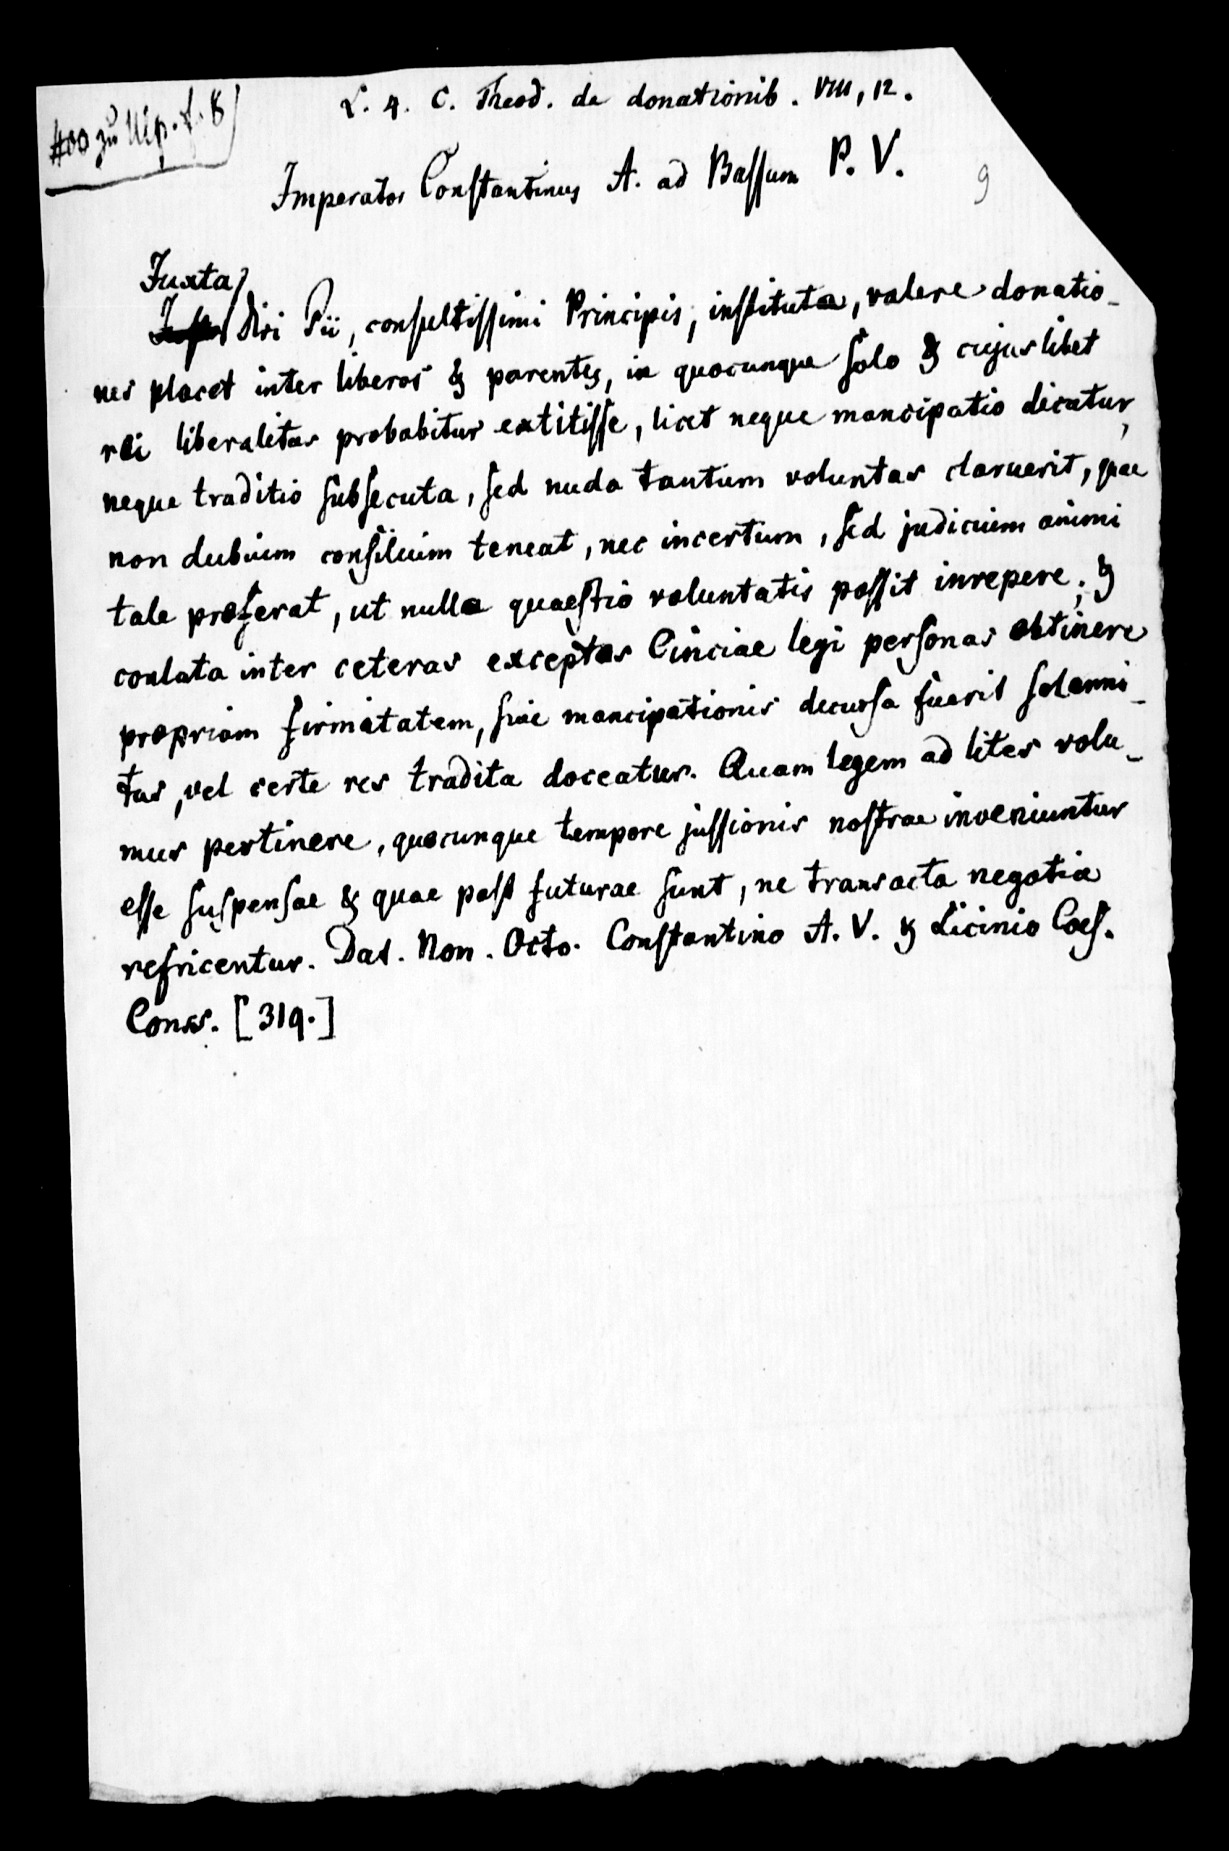 #00 zu Ulp. f. 8
L. 4. C. Theod. de donationib. VIII, 12.
9
Imperator Constantinus A. ad Bassum P. V.
Juxta
Divi Pii, consultissimi Principis, instituta, valere donatio-
nes placet inter liberos & parentes, in quocunque solo & cujuslibet
rei liberalitas probabitur extitisse, licet neque mancipatio dicatur,
neque traditio subsecuta, sed nuda tantum voluntas claruerit, quae
non dubium consilium teneat, nec incertum, sed judicium animi
tale proferat, ut nulla quaestio voluntatis possit inrepere; &
conlata inter ceteras exceptas Cinciae legi personas obtinere
propriam firmitatem, sive mancipationis decursa fuerit solemni-
tas, vel certe res tradita doceatur. Quam legem ad lites volu-
mus pertinere, quocunque tempore jussionis nostrae inveniuntur
esse suspensae & quae post futurae sunt, ne transacta negotia
refricentur. Dat. Non. Octo. Constantino A. V. & Licinio Caes.
Conss. [319.]